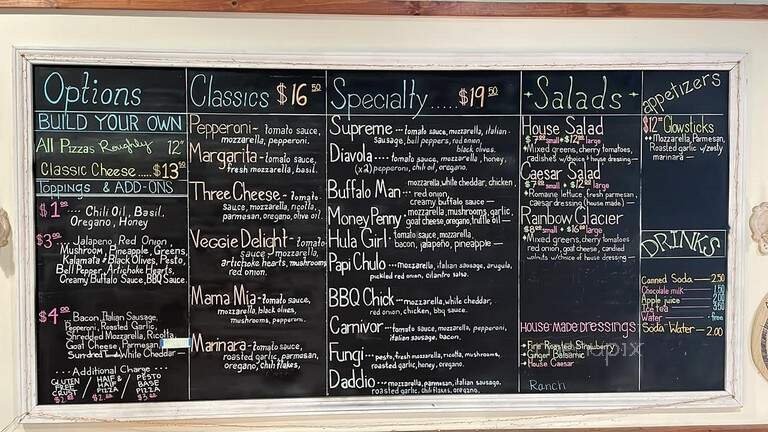 Options
BUILD YOUR OWN
All Pizzas Roughly 12"
Classic Cheese.....$13.50
Toppings & ADD-ONS
$1.00 .... Chili Oil, Basil.
Oregano, Honey
$3.00 ... Jalapeno, Red Onion
Mushroom, Pineapple, Greens,
Kalamata & Black Olives, Pesto,
Bell Pepper, Artichoke Hearts,
Creamy Buffalo Sauce, BBQ Sauce.
$4.00 Bacon, Italian Sausage,
Pepperoni, Roasted Garlic,
Shredded Mozzarella, Ricotta
Goat Cheese, Parmesan,
White Cheddar—
...Additional Charge...
GLUTEN FREE CRUST / HALF & HALF PIZZA / PESTO BASE PIZZA
Classics $16.50
Pepperoni- tomato sauce,
mozzarella, pepperoni.
Margarita- tomato sauce,
fresh mozzarella, basil.
Three Cheese - tomato
sauce, mozzarella, ricotta,
parmesan, oregano, olive oil.
Veggie Delight - tomato
sauce, mozzarella,
artichoke hearts, mushrooms
red onion.
Mama Mia - tomato sauce,
mozzarella, black olives,
mushrooms, pepperoni.
Marinara- tomato sauce,
roasted garlic, parmesan,
oregano, chili flakes,
Specialty.....$19.50
Supreme --- tomato sauce, mozzarella, italian
sausage, bell peppers, red onion,
black olives.
Diavola --- tomato sauce, mozzarella, honey,
(x2) pepperoni, chili oil, oregano.
Buffalo Man --- mozzarella, white cheddar, chicken,
red onion,
creamy buffalo sauce —
Money Penny --- mozzarella, mushrooms, garlic,
goat cheese, oregano, truffle oil —
Hula Girl - tomato sauce, mozzarella,
bacon, jalapeño, pineapple —
Papi Chulo --- mozzarella, italian sausage, arugula,
pickled red onion, cilantro salsa.
BBQ Chick --- mozzarella, white cheddar,
red onion, chicken, bbq sauce.
Carnivor --- tomato sauce, mozzarella, pepperoni,
italian sausage, bacon.
Fungi --- pesto, fresh mozzarella, ricotta, mushrooms,
roasted garlic, honey, oregano.
Daddio --- mozzarella, parmesan, italian sausage,
roasted garlic, chili flakes, oregano.
Salads
House Salad
small $12.00 large
Mixed greens, cherry tomatoes,
radishes w/choice of house dressing —
Caesar Salad
small $12.00 large
Romaine lettuce, fresh parmesan,
caesar dressing (house made) —
Rainbow Glacier
small $16.00 large
Mixed greens, cherry tomatoes
red onion, goat cheese, candied
walnuts w/choice of house dressing —
HOUSE MADE DRESSINGS
Fire Roasted Strawberry
Ginger Balsamic
House Caesar
Ranch
appetizers
$12.00 Glowsticks
Mozzarella, Parmesan,
Roasted garlic w/zesty
marinara —
DRINKS
Canned Soda — 2.50
Chocolate milk 1.50
Apple juice 2.00
Ice tea 3.50
Water - free
Soda Water — 2.00